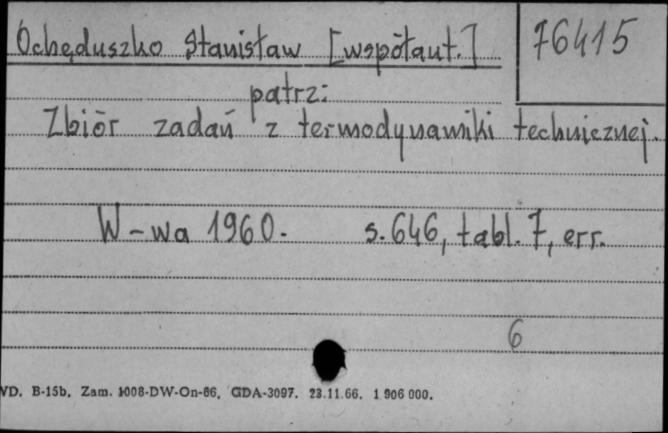 Ochęduszko Stanisław [współaut.]
76415
patrz:
Zbiór zadań z termodynamiki technicznej.
W-wa 1960. s. 646, tabl. 7, err.
6
VD. B-15b. Zam. 1008-DW-On-66. GDA-3097. 23.11.66. 1 906 000.